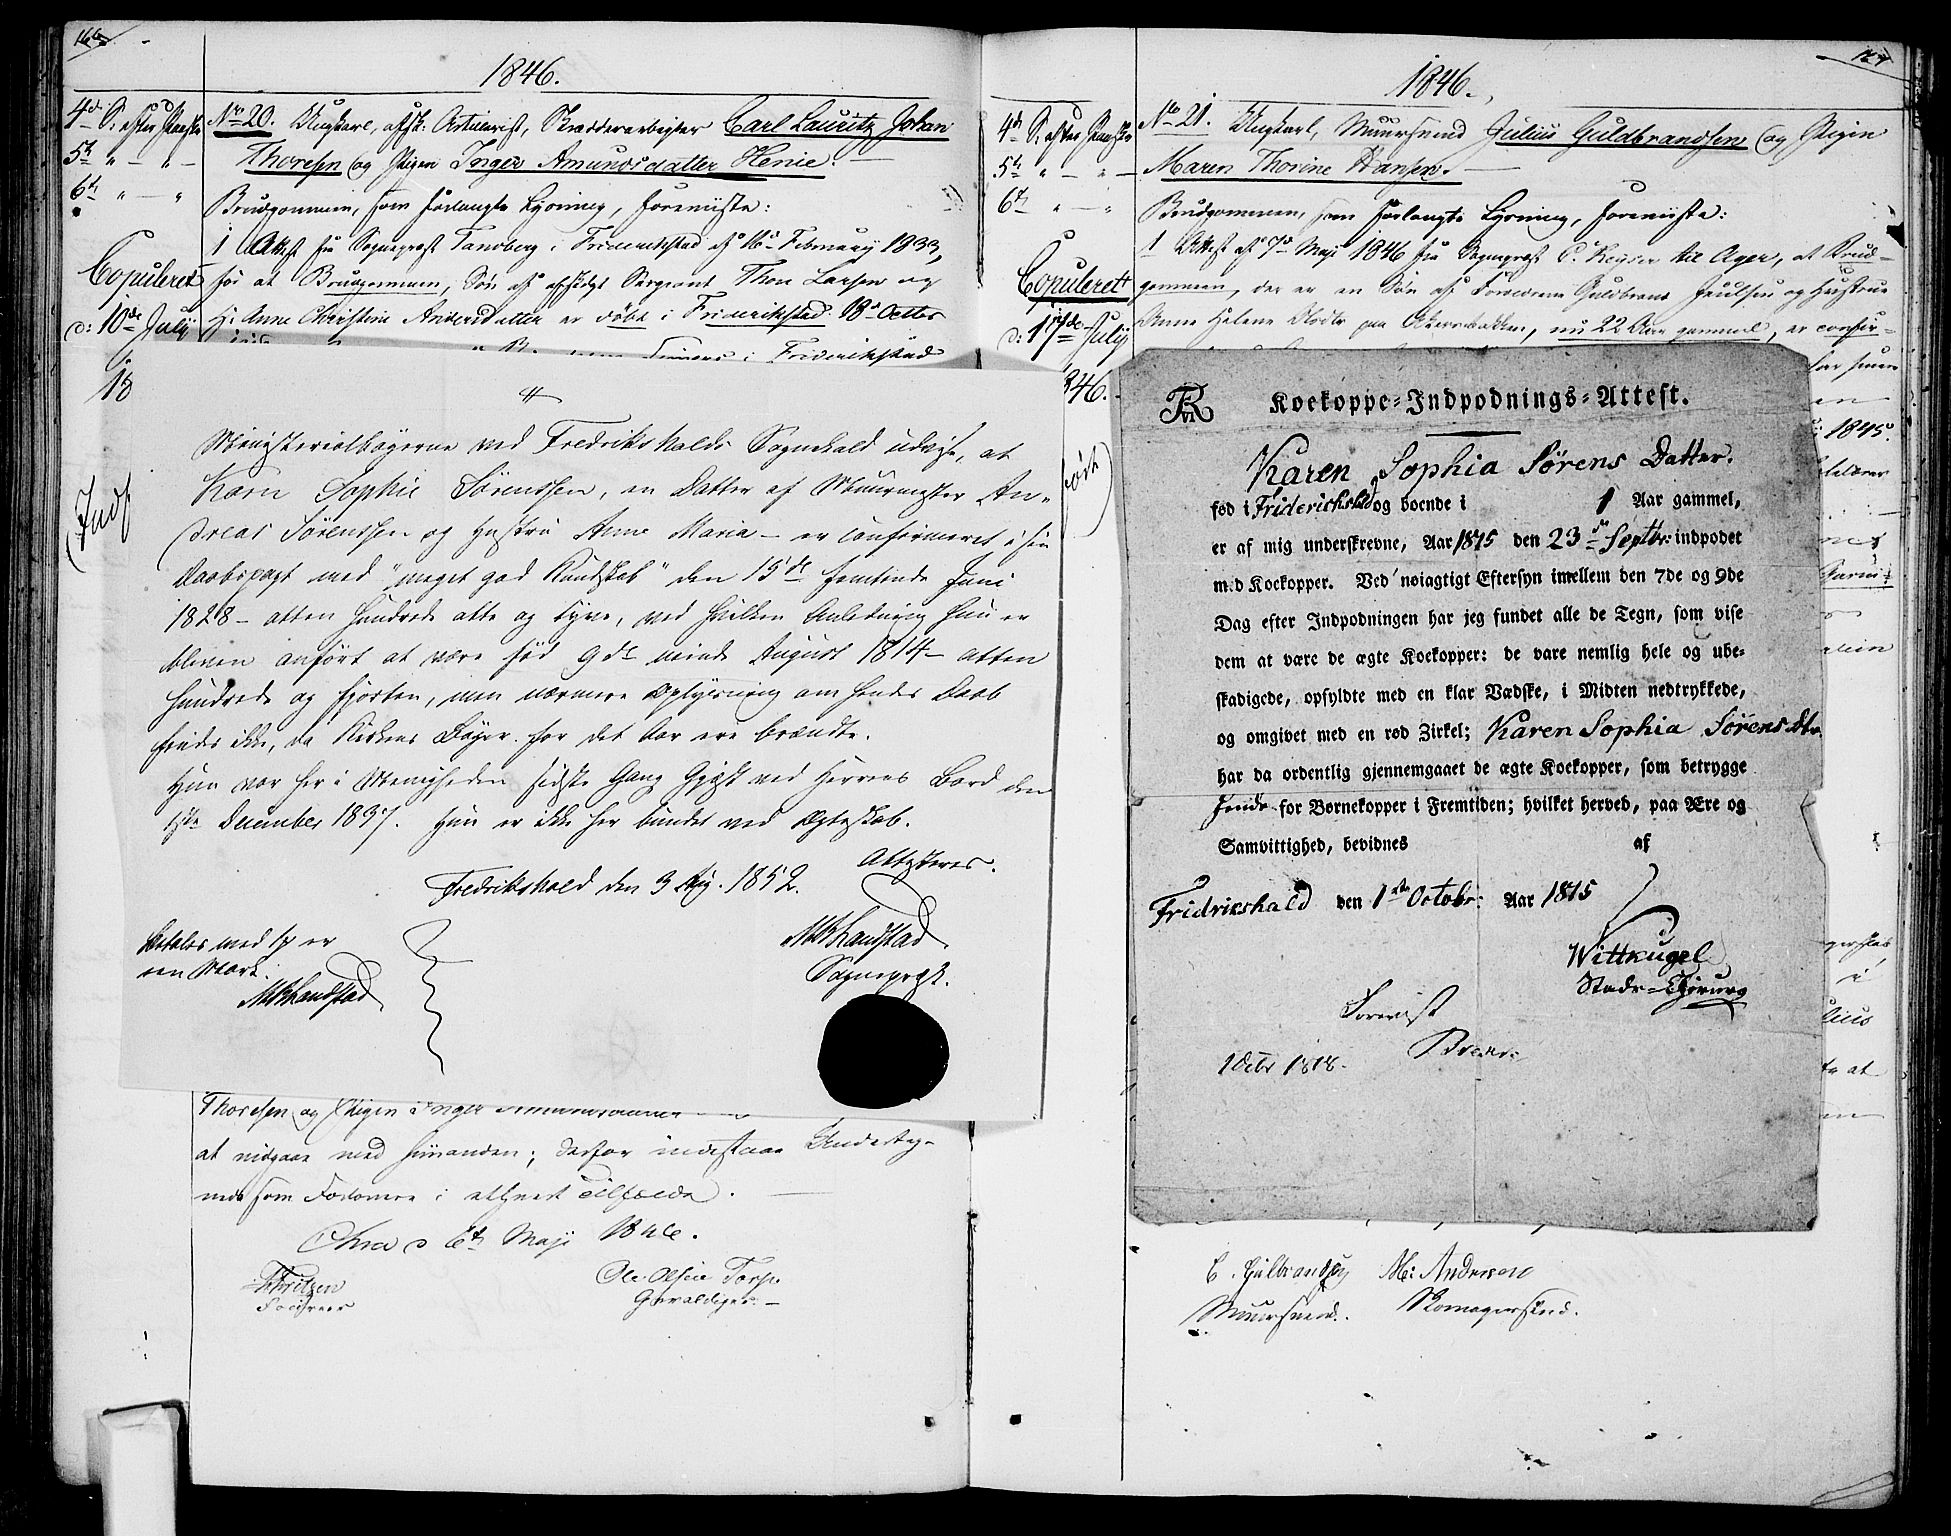 166
1846.
4de S. efter Paaske
5te " — " —
6te " — "
Copuleret
d: 10de Julij
18
(Indf
No 20. Ungkarl, afsk: Artillerist, Skrædderarbeider Carl Lauritz Johan
Thoresen og Pigen Inger Amundsdatter Henie. —
Brudgommen, som forlangte Lysning, foreviiste:
1 Attest fra Sognepræst Tandberg i Friderikstad af 16de February 1833,
for at Brudgommen, Søn af afskdgt Sergeant Thor Larsen og
H: Anne Christine Andersdatter er døbt i Friderikstad 18de Octbr
i Friderikstad
Ministerialbøgerne ved Fredrikshalds Sognekald udvise, at
Karn Sophie Sørenssen, en Datter af Muurmester An-
dreas Sørenssen og Hustru Anne Maria — er confirmeret i sin
Daabspagt med "meget god Kundskab" den 15de femtende Juni
1828 — atten hundrede otte og tyve, ved hvilken Anledning hun er
bleven anført at være født 9de niende August 1814 — atten
hundrede og fjorten, men nærmere Oplysning om hendes Daab
findes ikke, da Kirkens Bøger for det Aar ere brændte.
Hun var her i Menigheden sidste Gang Gjæst ved Herrens Bord den
December 1837. Hun er ikke her bundet ved Ægteskab.
Attesteres.
Fredrikshald den 3 Aug. 1852.
MBLandstad
Sognepræst.
Betales med er
een Mark.
MBLandstad
Thoresen og Pigen Inger
at indgaae med hinanden; derfor indestaae Underteg-
nede som Forlovere i ethvert Tilfælde. —
Chra d 6te Maji 1846.
Ole Olsen Torp.
Gevaldiger. —
167
1846.
4de S. efter Paaske
5te " — " —
6te " — "
Copuleret
d: 17de Julij
346.
ørt)
No 21. Ungkarl, Muursvend Julius Guldbrandsen og Pigen
Maren Thorine Hansen. —
Brudgommen, som forlangte Lysning, foreviiste:
1 Attest af 7de Maji 1846 fra Sognepræst C. Keyser til Ager, at Brud-
gommen, der er en Søn af Forældrene Guldbrand Poulsen og Hustrue
Anne Helene Olsdtr paa Akersbakken, nu 22 Aar gammel, er confir-
1845.
FR VI
Koekoppe-Indpodnings-Attest.
Karen Sophia Sørens Datter.
fød i Friderichshald og boende i 1 Aar gammel,
er af mig underskrevne, Aar 1815 den 23de Septbr: indpodet
med Koekopper. Ved nøiagtigt Eftersyn imellem den 7de og 9de
Dag efter Indpodningen har jeg fundet alle de Tegn, som vise
dem at være de ægte Koekopper: de vare nemlig hele og ube-
skadigede, opfyldte med en klar Vædske, i Midten nedtrykkede,
og omgivet med en rød Zirkel; Karen Sophia Sørens Dtr.
har da ordentlig gjennemgaaet de ægte Koekopper, som betrygge
hende for Børnekopper i Fremtiden; hvilket herved, paa Ære og
Samvittighed, bevidnes af
Fridrikshald den 1ste Octobr: Aar 1815
Wittkugel
Stads-Chirurg
Forevist
1 Octbr 1818.
C. Gulbrandsen
Muursvend.
M: Andersen
Skomagersvend.